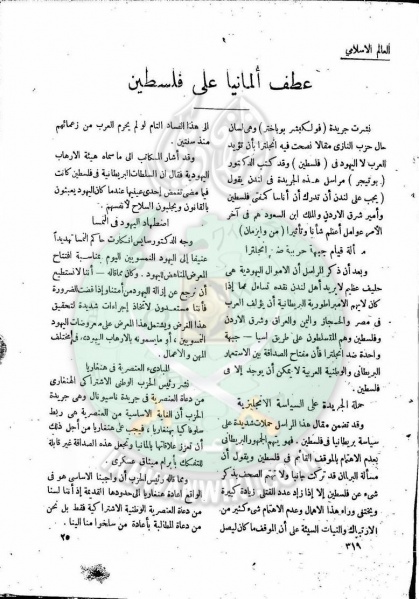 العالم الاسلامي
عطف ألمانيا على فلسطين
نشرت جريدة (فولكيشر بوباختر) وهى لسان
حال حزب النازى مقالا نصحت فيه انجلترا بأن تؤيد
العرب لا اليهود فى (فلسطين) وقد كتب الدكتور
(بوتيجر) مراسل هذه الجريدة فى لندن يقول
(يجب على لندن أن تدرك أن أناسا كمفتى فلسطين
وأمير شرق الاردن والملك ابن السعود هم فى آخر
الامر عوامل أعظم شأنا وتأثيرا (من وايزمان)
مسألة قيام جبهة حربية ضد انجلترا
وبعد أن ذكر المراسل أن الاموال اليهودية هى
حليف عظيم لا يريد أهل لندن فقده تساءل عما إذا
كان لايهم الامبراطورية البريطانية أن يؤلف العرب
فى مصر والحجاز واليمن والعراق وشرق الاردن
وفلسطين وهم المتسلطون على طريق آسيا — جبهة
واحدة ضد انجلترا فأن مفتاح الصداقة بين الاستعمار
البريطانى والوطنية العربية لا يمكن أن يوجد إلا فى
فلسطين.
حملة الجريدة على السياسة الانجليزية
وقد تضمن مقال هذا المراسل حملات شديدة على
سياسة بريطانيا فى فلسطين. فهو يتهم الجمهور البريطانى
بعدم الاهتمام بالموقف القائم فى فلسطين ويقول أن
مسألة البرلمان قد تركت جانبا ولا تهتم الصحف بذكر
شىء عن فلسطين إلا إذا زاد عدد القتلى زيادة كبيرة
ويختفى وراء هذا الاهمال وعدم الاهتمام شىء كثير من
الارتباك والنيات السيئة على أن الموقف ما كان ليصل
الى هذا الفساد التام لو لم يحرم العرب من زعمائهم
منذ سنتين.
وقد أشار الكاتب الى ما سماه هيئة الارهاب
اليهودية فقال ان السلطات البريطانية فى فلسطين كانت
فيما مضى تغمض إحدى عينيها عندما كان اليهود يعبثون
بالقانون ويجلبون السلاح لأنفسهم.
اضطهاد اليهود فى النمسا
وجه الدكتور سايس انكارت حاكم النمسا تهديداً
عنيفا إلى اليهود النمسويين بمناسبة افتتاح
المعرض المناهض لليهود. وكان مما قاله — أننا لا نستطيع
أن نرجع عن إزالة اليهود من أمتنا واذا قضت الضرورة
فأننا مستعدون لاتخاذ إجراءات شديدة لتحقيق
هذا الغرض ويشتمل هذا المعرض على معروضات اليهود
النمسويين، أو مايسمونه بالارهاب اليهود. فى مختلف
المهن والاعمال.
المبادىء العنصرية فى هنغاريا
نشر رئيس الحزب الوطنى الاشتراكى الهنغارى
من دعاة العنصرية فى جريدة ناسيونال وهى جريدة
الحزب أن الغاية الاساسية من العنصرية هى ربط
هنغاريا من أجل ذلك
أن تعزز علاقاتها بألمانيا وتجعل هذه الصداقة غير قابلة
للتفكك بأبرام ميثاق عسكرى.
ومما قاله رئيس الحزب أن واجبنا الاساسى هو فى
الواقع اعادة هنغاريا إلى حدودها القديمة إذ أننا لسنا
من دعاة العنصرية الوطنية الاشتراكية فقط بل نحن
من دعاة المطالبة بأعادة من سلخوا منا الينا.
٢٥
٣١٩